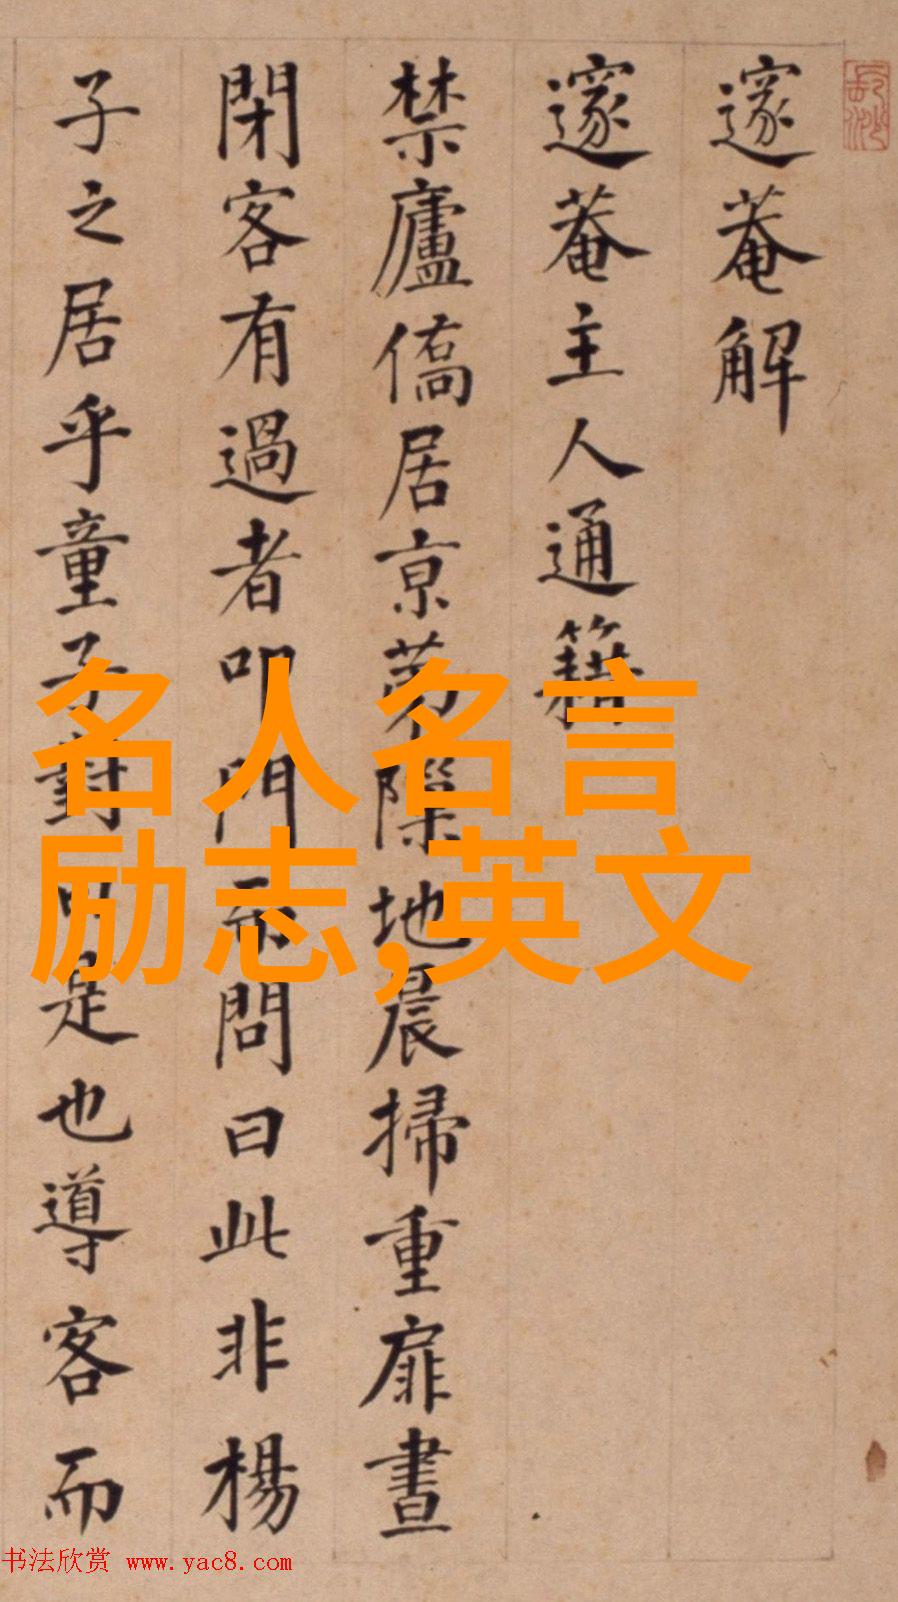 邃菴解
邃菴主人通籍
禁廬僑居京苐隙地晨掃重扉晝
閉客有過者叩門而問曰此非楊
子之居乎童子對曰是也導客而
名人名言
励志,英文
书法欣赏 www.yac8.com